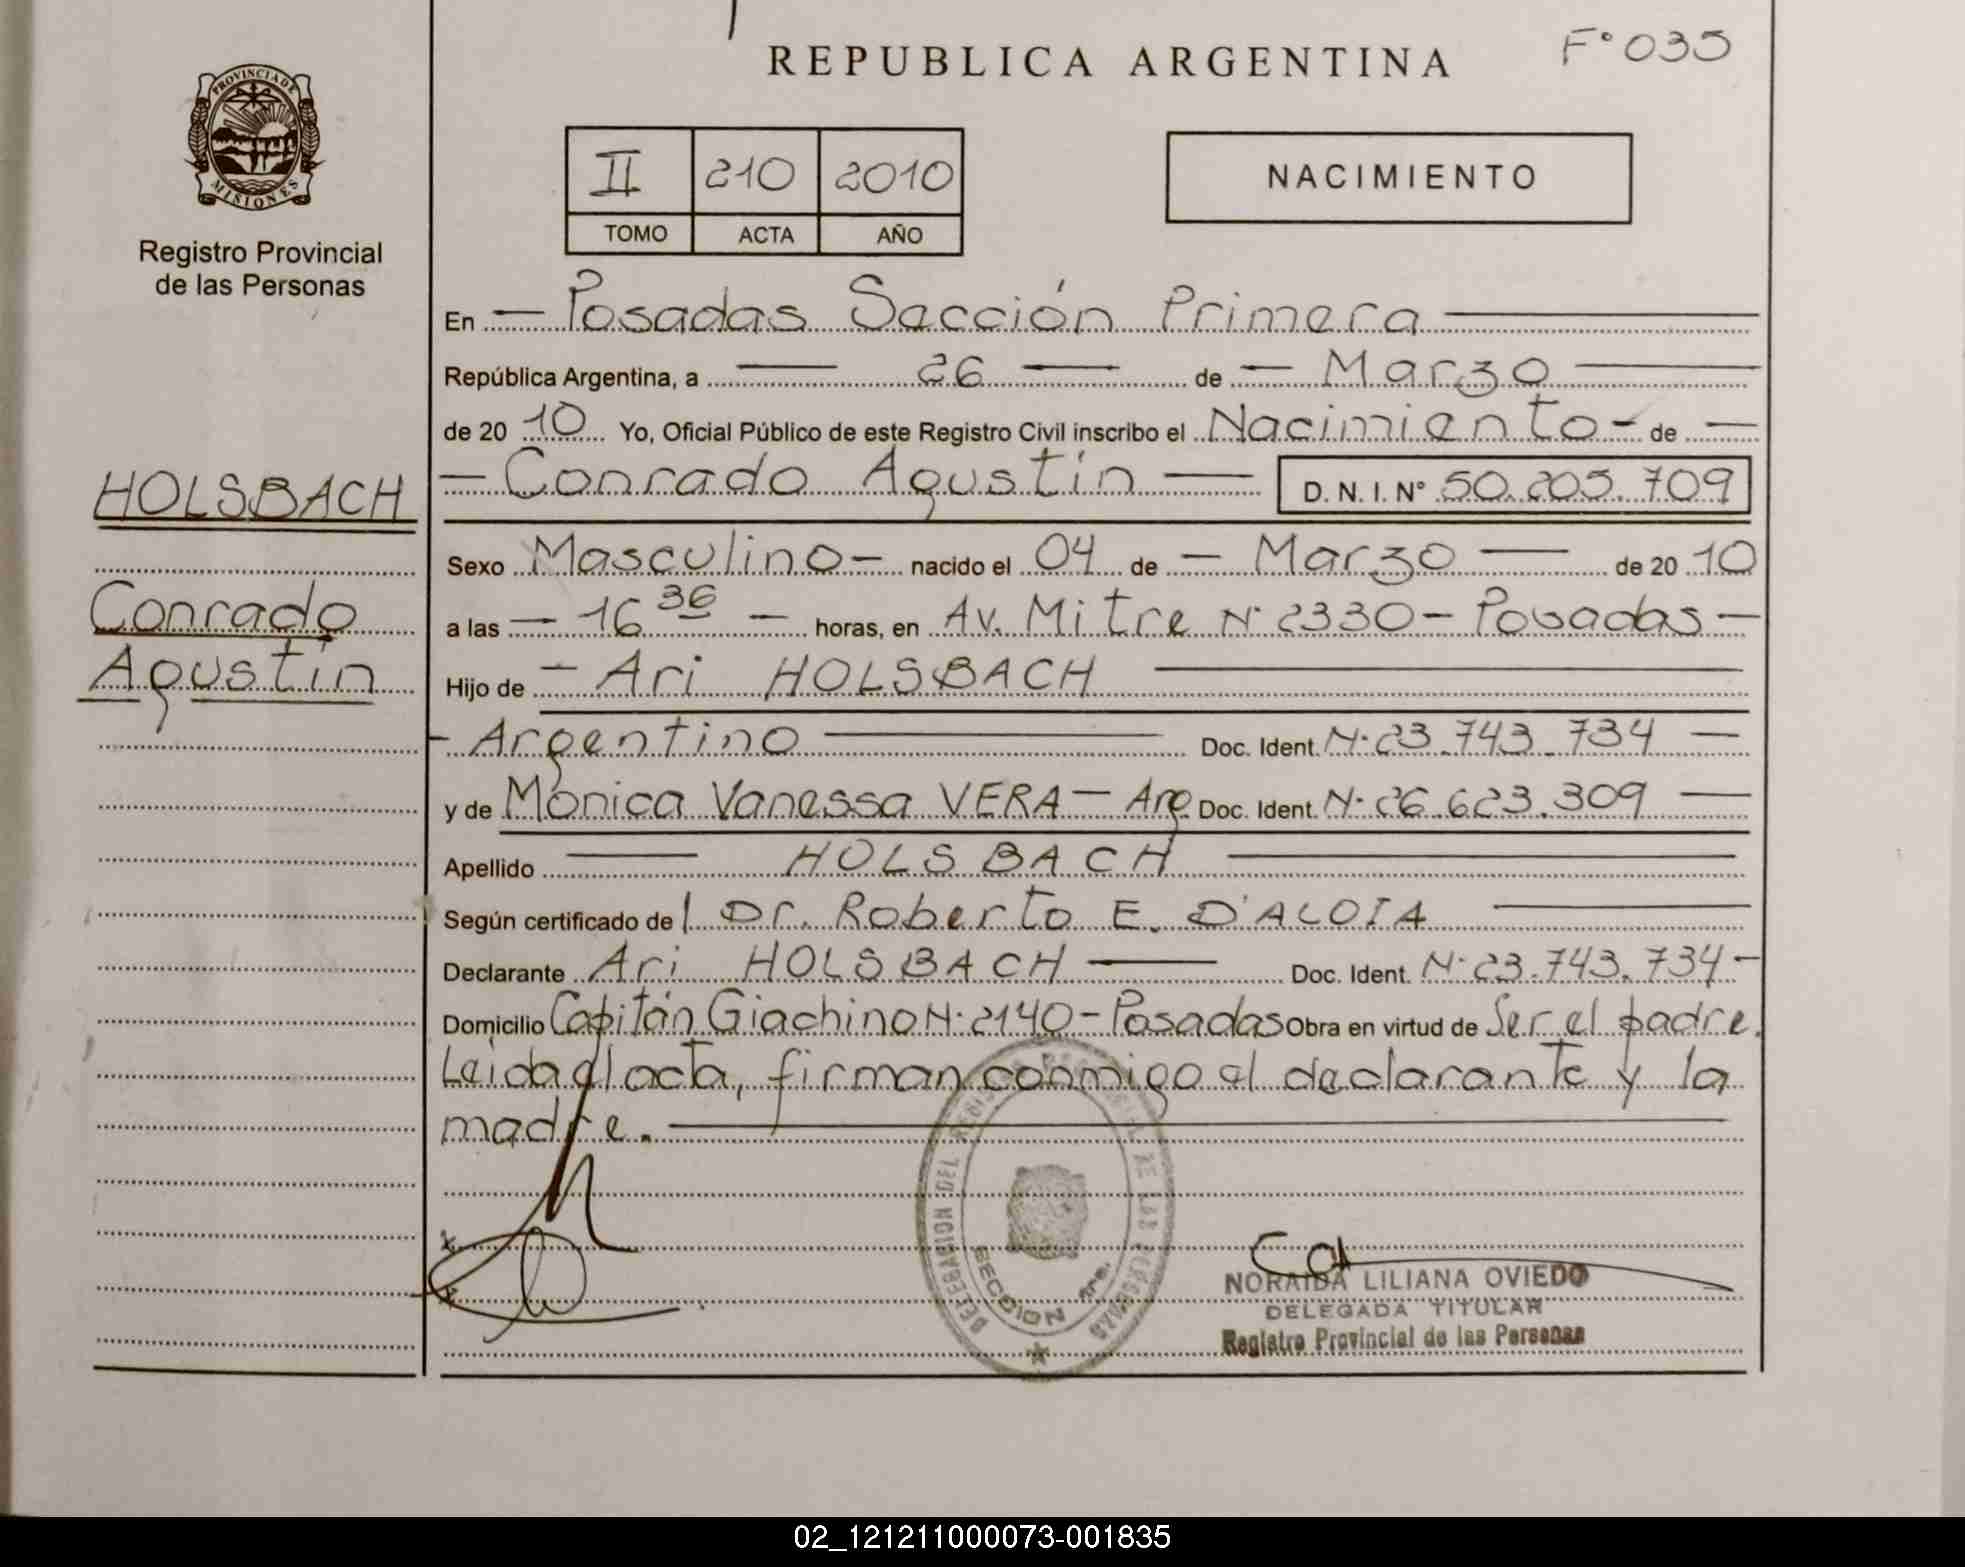 REPUBLICA ARGENTINA
F° 035
PROVINCIA DE MISIONES
Registro Provincial
de las Personas
II 210 2010
TOMO ACTA AÑO
NACIMIENTO
En - Posadas Sección Primera
República Argentina, a 26 de - Marzo
de 20 10 Yo, Oficial Público de este Registro Civil inscribo el Nacimiento - de -
- Conrado Agustín - D. N. I. N° 50.205.709
HOLSBACH
Conrado
Agustín
Sexo Masculino - nacido el 04 de - Marzo - de 20 10
a las - 16 36 - horas, en Av. Mitre N° 2330 - Posadas -
Hijo de - Ari HOLSBACH
- Argentino Doc. Ident. N° 23.743.734 -
y de Mónica Vanessa VERA - Arg Doc. Ident. N° 26.623.309 -
Apellido HOLSBACH
Según certificado de l Dr. Roberto E. D'ALOIA
Declarante Ari HOLSBACH - Doc. Ident. N° 23.743.734 -
Domicilio Capitán Giachino N° 2140 - Posadas Obra en virtud de Ser el padre.
Leída el acta, firman conmigo el declarante y la
madre.
DELEGACION DEL REGISTRO PROVINCIAL DE LAS PERSONAS
SECCION 1ra.
NORAIDA LILIANA OVIEDO
DELEGADA TITULAR
Registro Provincial de las Personas
02_121211000073-001835